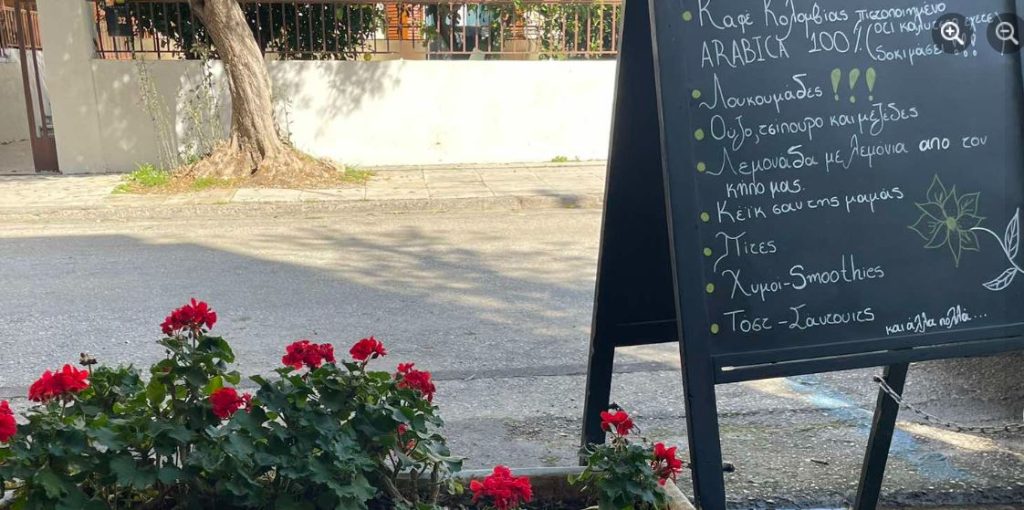 Καφέ Κολομβίας πιστοποιημένο
ότι καλύτερο έχετε
ARABICA 100% δοκιμάσει!!!
Λουκουμάδες !!!
Ούζο, τσίπουρο και μεζέδες
Λεμονάδα με λεμόνια απο τον
κήπο μας.
Κέικ σαν της μαμάς
Πίτες
Χυμοί-Smoothies
Τοστ-Σάντουιτς
και άλλα πολλά...